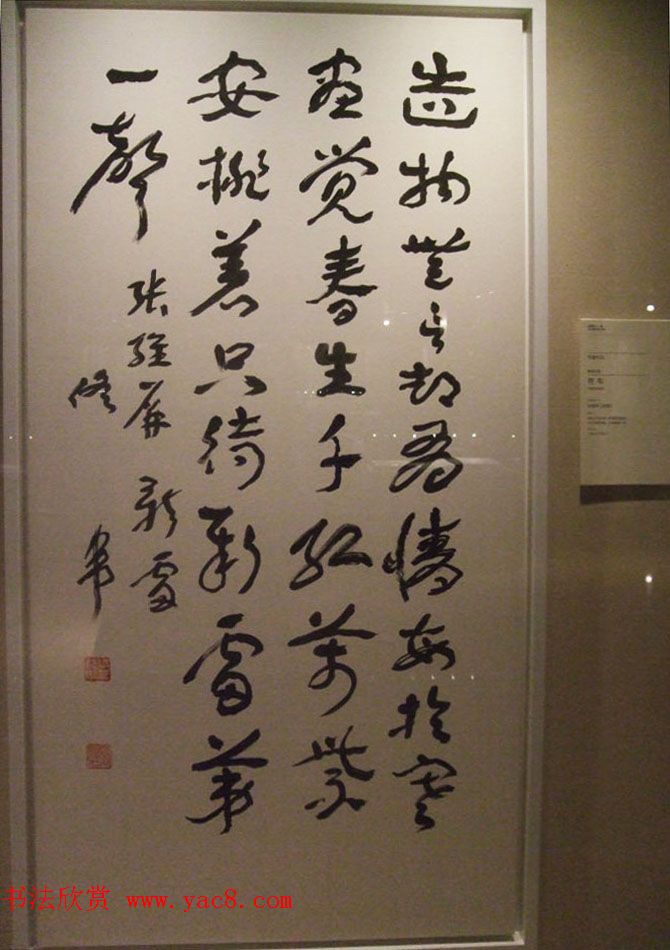 造物無言却有情每於寒
盡觉春生千红萬紫
安排着只待新雷第
一聲
张维屏 新雷
佟韦
书法欣赏 www.yac8.com